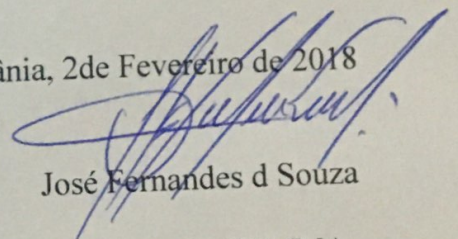 ânia, 2de Fevereiro de 2018
José Fernandes d Souza